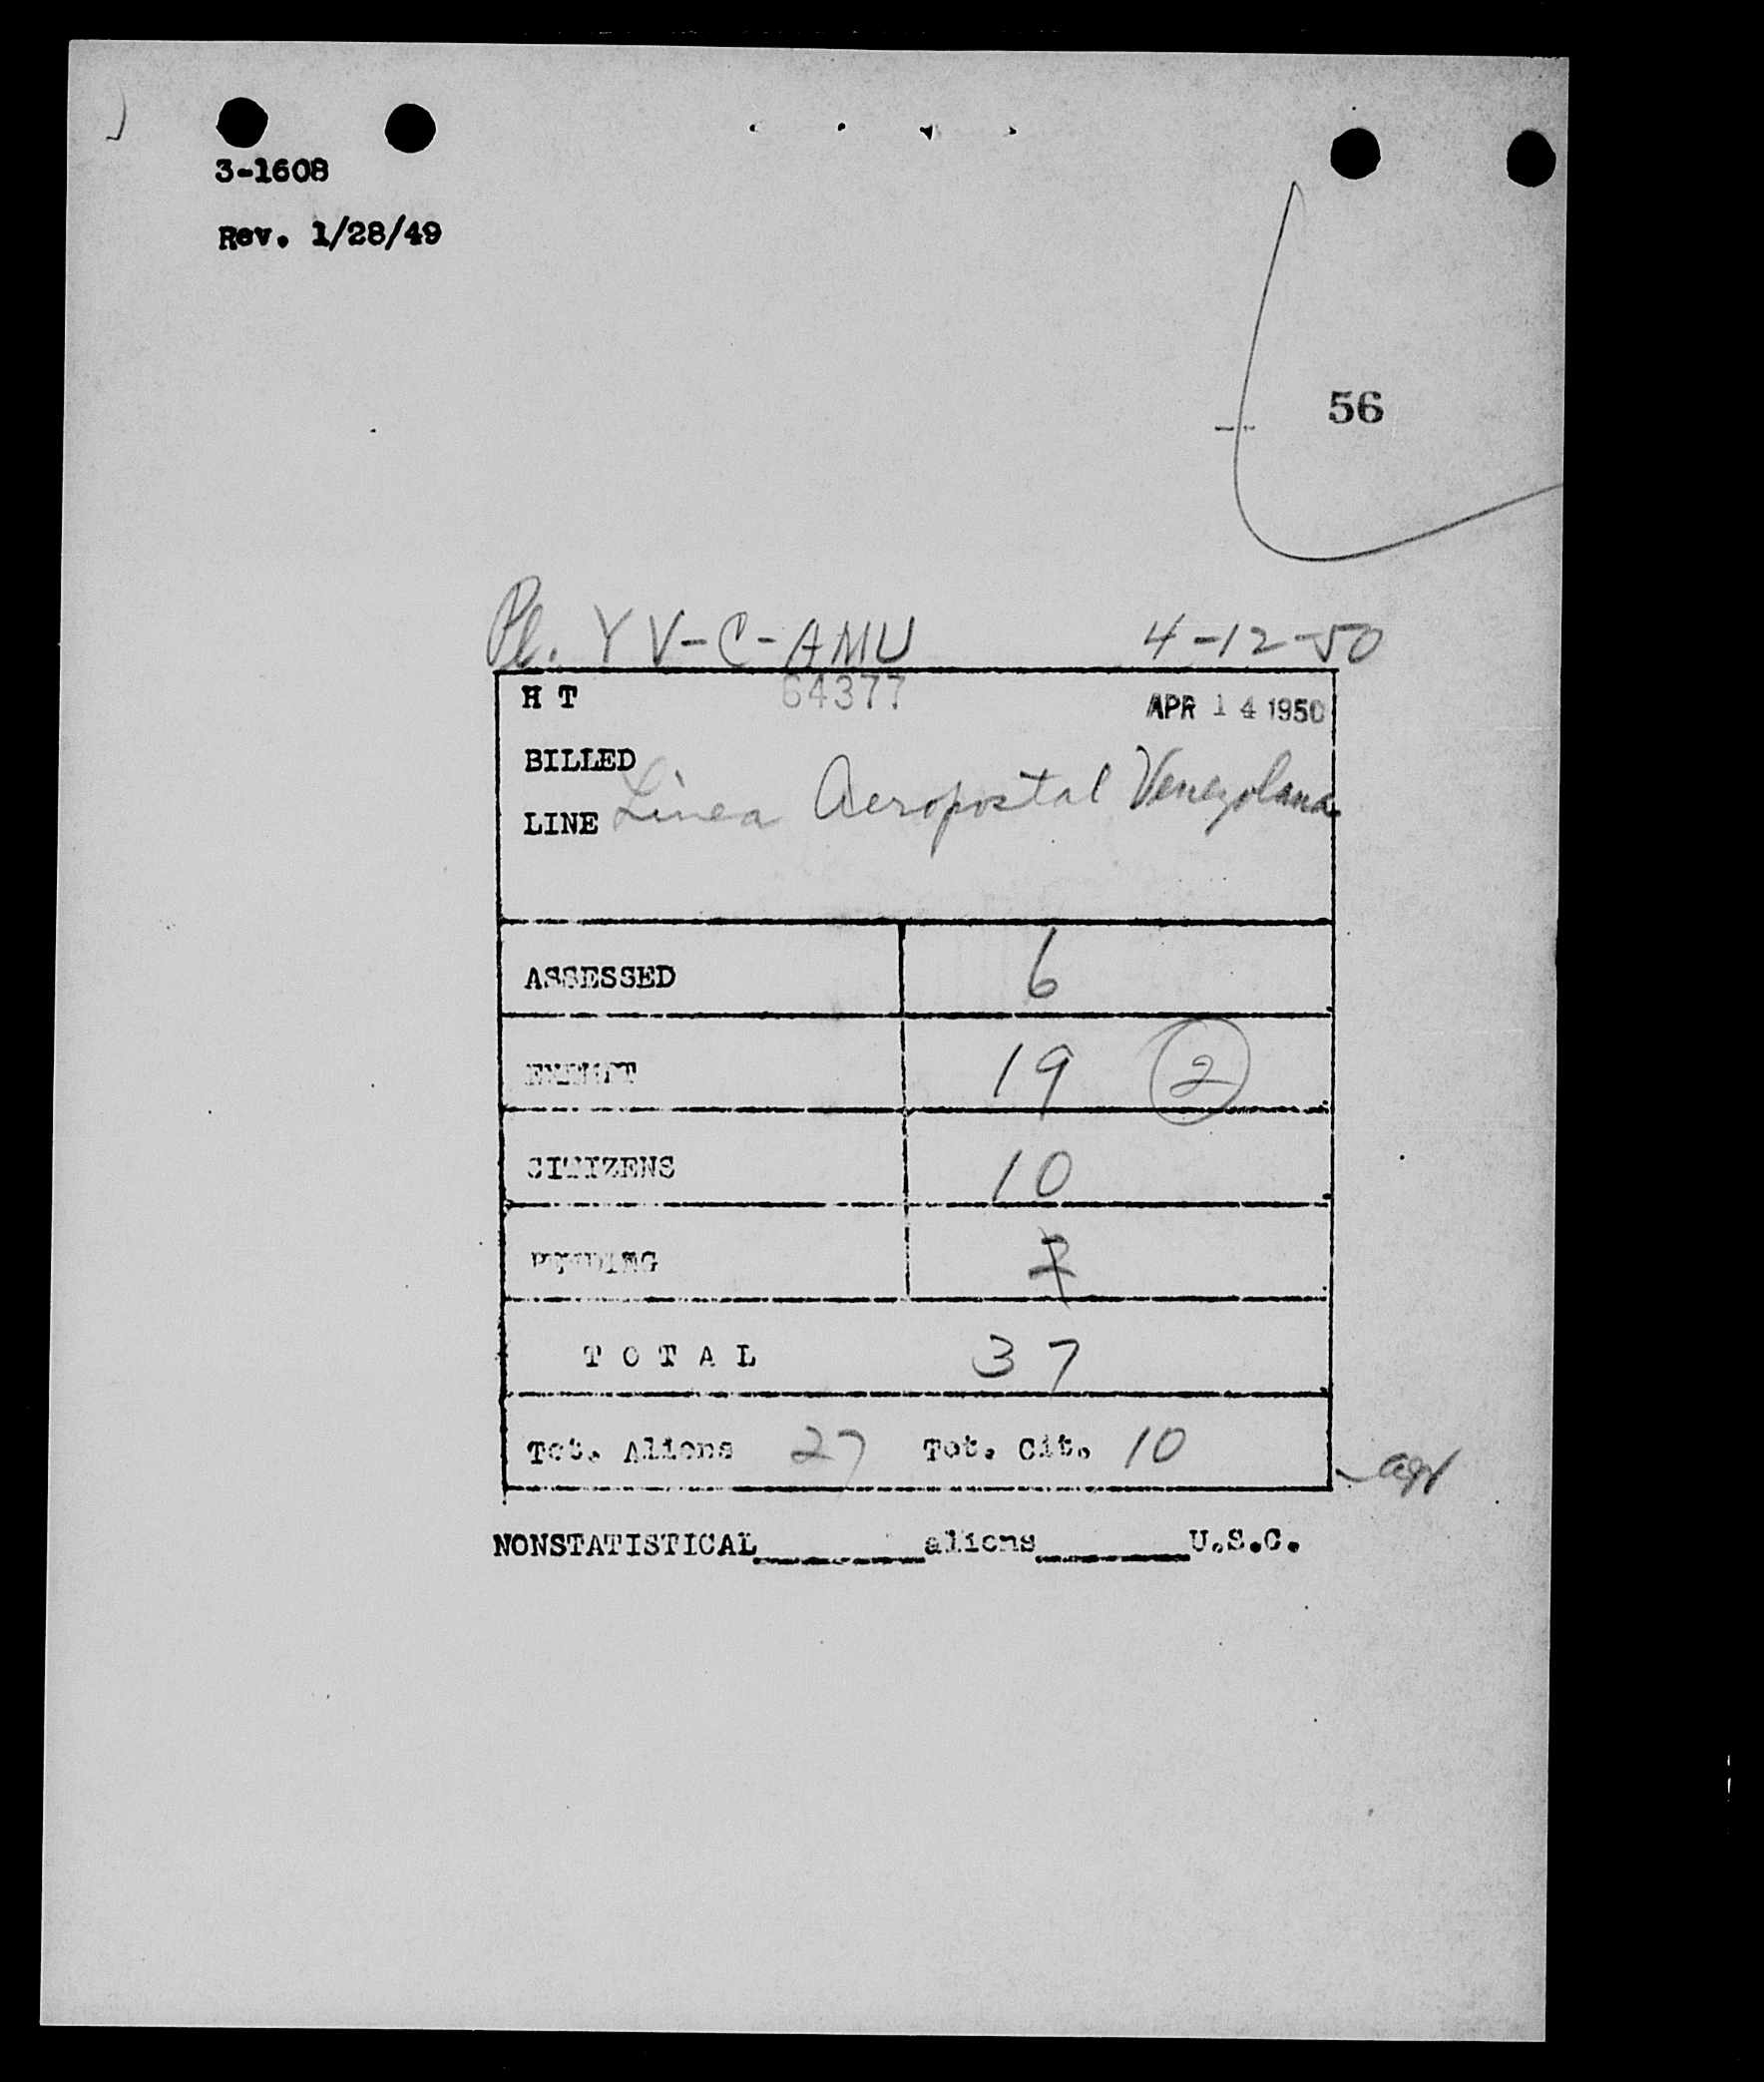 3-1608
Rev. 1/28/49
56
Pl. YV-C-AMU 4-12-50
H T 64377 APR 14 1950
BILLED
LINE Linea Aeropostal Venezolana
ASSESSED 6
EXEMPT 19 2
CITIZENS 10
PENDING 2
T O T A L 37
Tot. Aliens 27 Tot. Cit. 10
NONSTATISTICAL________aliens________U.S.C.